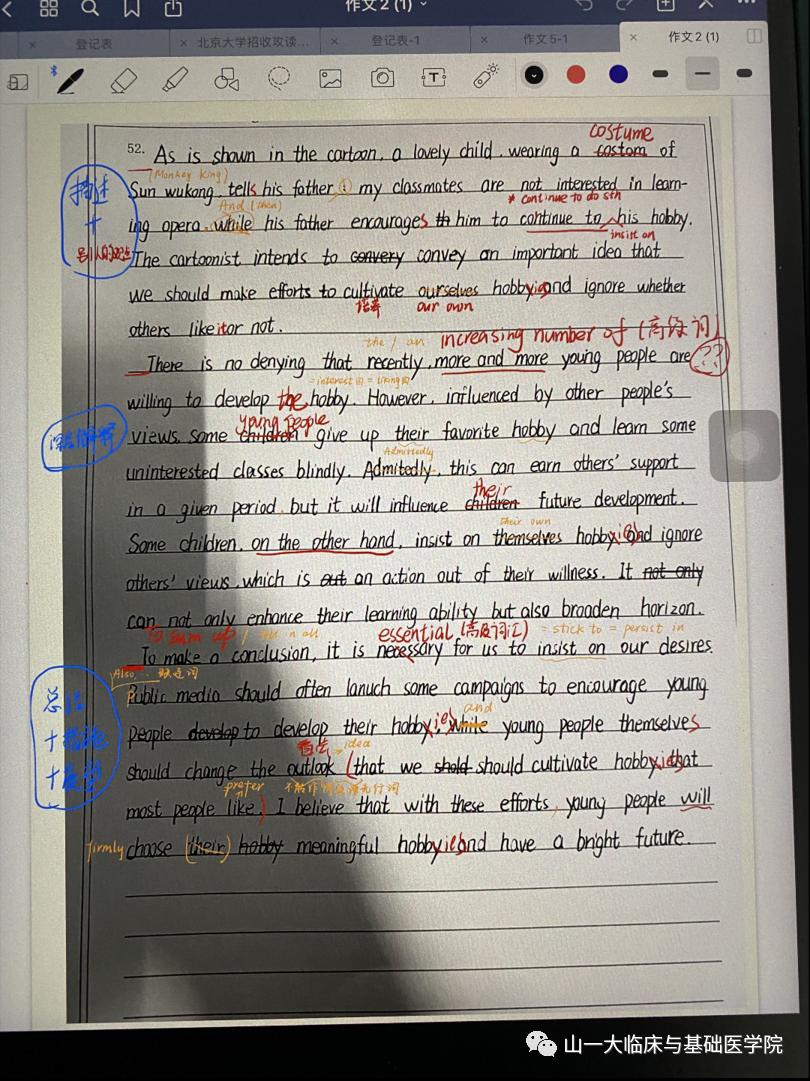 作文2 (1)
登记表
北京大学招收攻读...
登记表-1
作文5-1
作文2 (1)
costume
52. As is shown in the cartoon, a lovely child, wearing a costom of
(Monkey king)
描述
Sun wukong tells his father : my classmates are not interested in learn-
And (then)
* continue to do sth
+
ing opera, while his father encourages th him to continue to his hobby.
insist on
The cartoonist intends to convery convey an important idea that
we should make efforts to cultivate ourselves hobbyies and ignore whether
培养
our own
others like it or not.
the / an increasing number of (高级词)
There is no denying that recently, more and more young people are ??
= interest = liking
willing to develop the hobby. However, influenced by other people's
young people
views, some children give up their favorite hobby and learn some
深层解释
Admittedly
uninterested classes blindly. Admitedly, this can earn others' support
their
in a given period, but it will influence children future development.
their own
Some children, on the other hand, insist on themselves hobbyies and ignore
others' views, which is out an action out of their willness. It not only
can not only enhance their learning ability but also broaden horizon.
To sum up / all in all
essential (高级词汇)
= stick to = persist in
To make a conclusion, it is necessary for us to insist on our desires.
Also,
Public media should often lanuch some campaigns to encourage young
总结
and
people develop to develop their hobbyies, while young people themselves
+措施
idea
should change the outlook (that we shold should cultivate hobbyies that
+展望
prefer
most people like) I believe that with these efforts, young people will
firmly choose (their) hobby meaningful hobbyies and have a bright future.
山一大临床与基础医学院